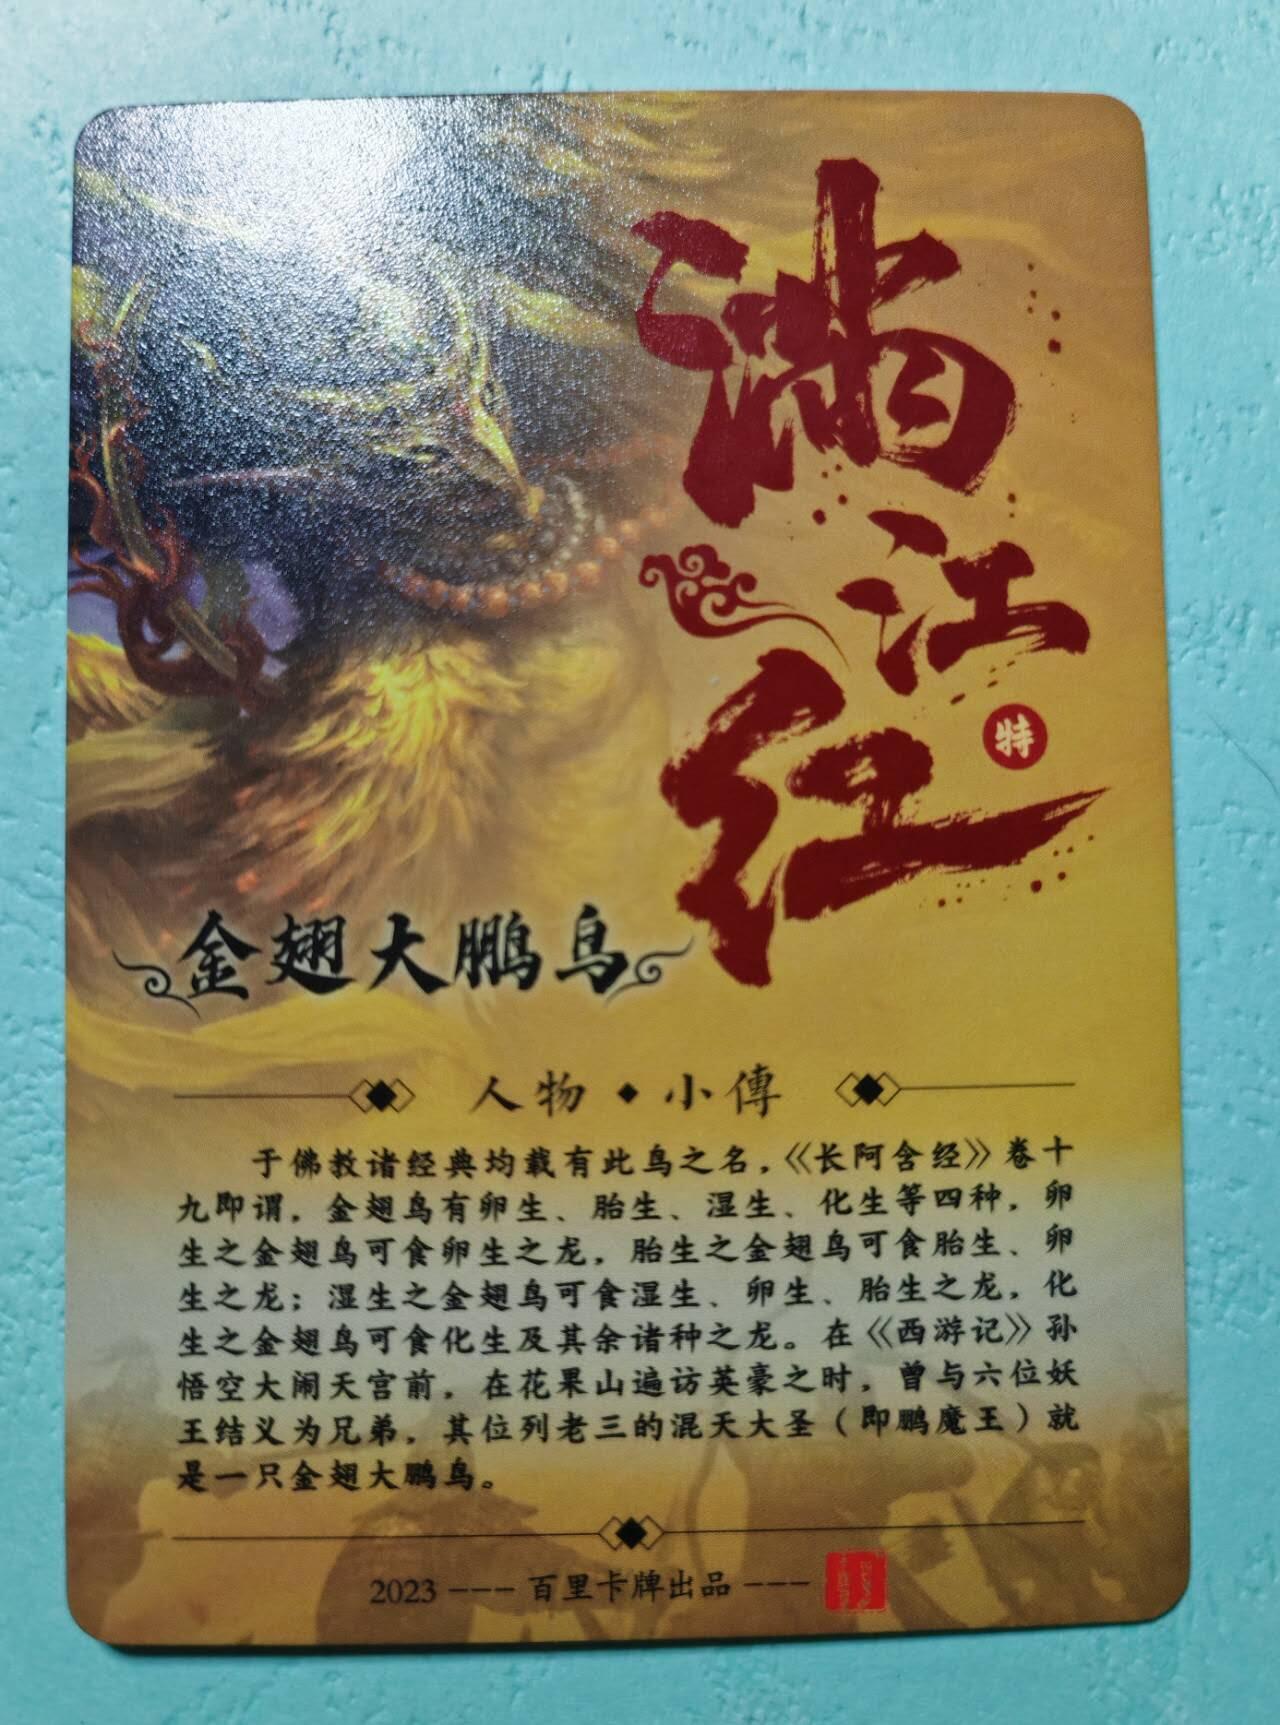 满江红
特
金翅大鹏鸟
人物·小傳
于佛教诸经典均载有此鸟之名，《长阿含经》卷十
九即谓，金翅鸟有卵生、胎生、湿生、化生等四种，卵
生之金翅鸟可食卵生之龙，胎生之金翅鸟可食胎生、卵
生之龙；湿生之金翅鸟可食湿生、卵生、胎生之龙，化
生之金翅鸟可食化生及其余诸种之龙。在《西游记》孙
悟空大闹天宫前，在花果山遍访英豪之时，曾与六位妖
王结义为兄弟，其位列老三的混天大圣（即鹏魔王）就
是一只金翅大鹏鸟。
2023---百里卡牌出品---